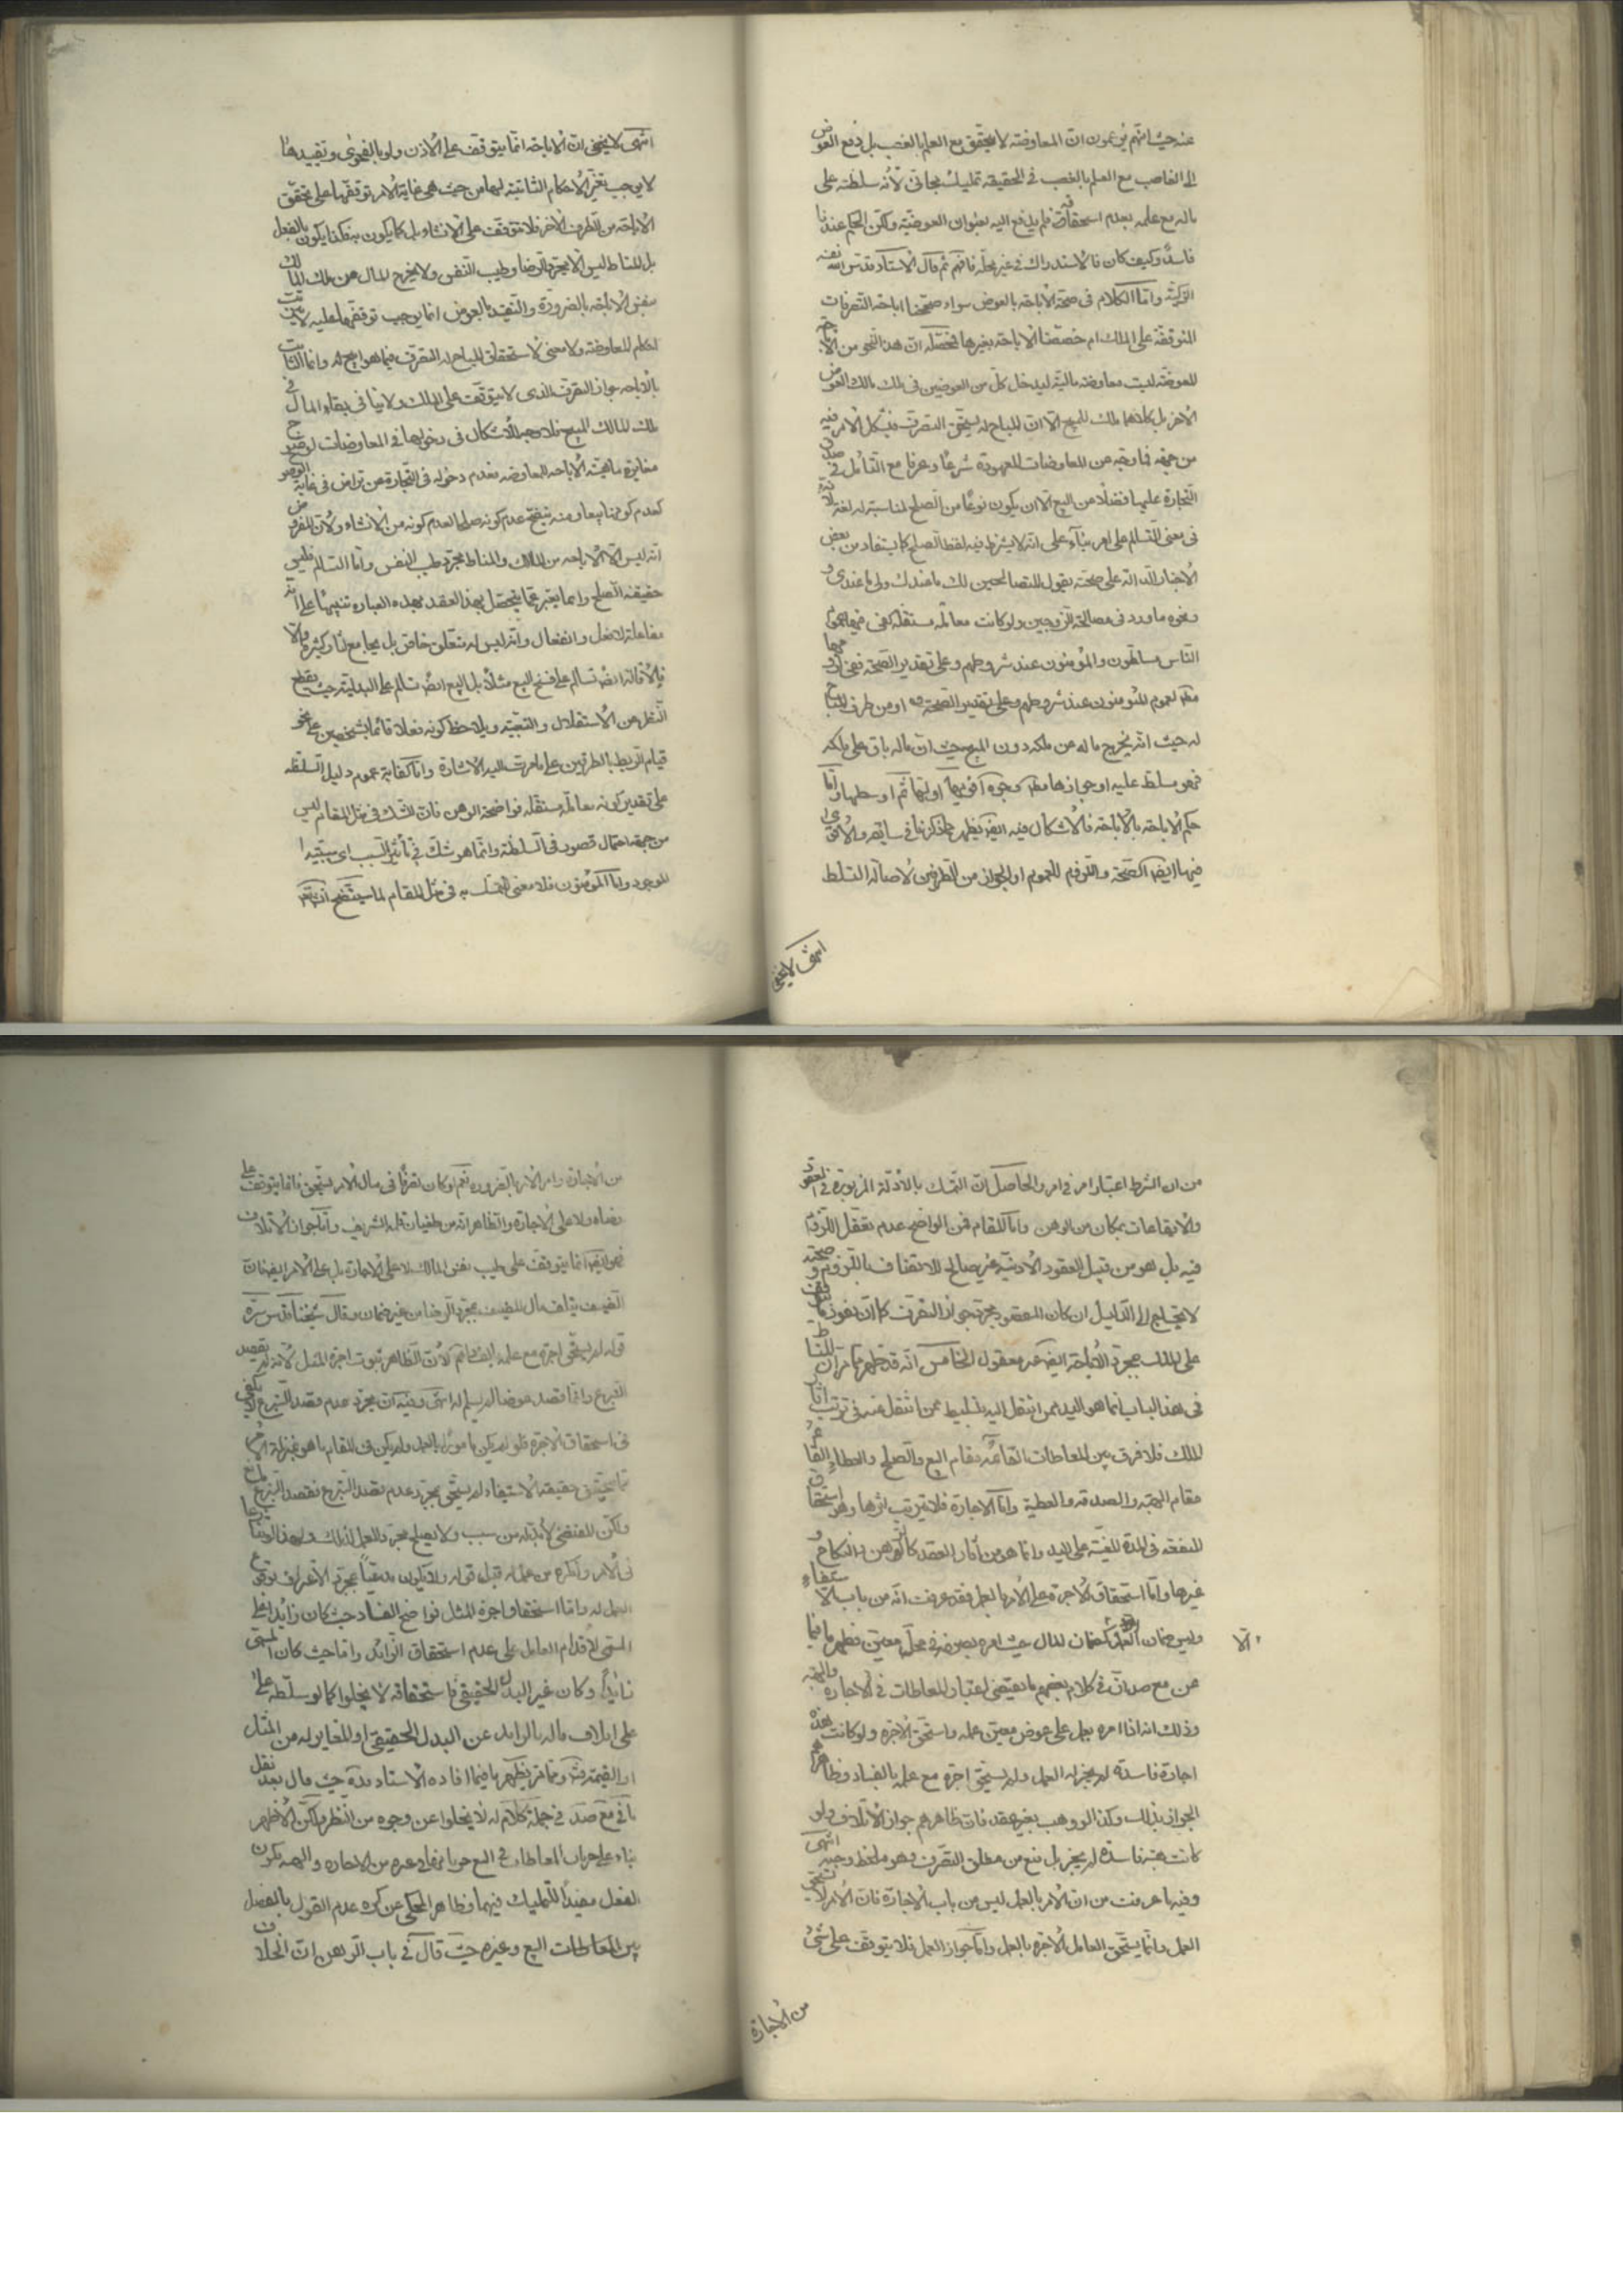 عنه حيث انهم يزعمون ان المعاوضة لا يتحقق مع العلم بالغصب بل دفع العوض
الى الغاصب مع العلم بالغصب في الحقيقة تمليك مجاني لانه سلطه على
ماله مع علمه بعدم استحقاقه فلم يدفع اليه بعنوان العوضية ولكن الحكم عندنا
فاسد وكيف كان فالاستدراك في غير محله فافهم ثم قال الاستاد قدس الله نفسه
الزكية واما الكلام في صحة الاباحة بالعوض سواء صححنا اباحة التصرفات
المتوقفة على الملك ام خصصنا الاباحة بغيرها فمحصله ان هذا النحو من الاباحة
المعوضة ليست معاوضة مالية ليدخل كل من العوضين في ملك مالك العوض
الاخر بل كلاهما ملك للمبيح الا ان المباح له يستحق التصرف فيشكل الامر فيه
من جهة خروجه عن المعاوضات المعهودة شرعا وعرفا مع التأمل في صدق
التجارة عليها فضلا من البيع الا ان يكون نوعا من الصلح لمناسبته له لغة لانه
في معنى التسالم على امر بناء على انه لا يشترط فيه لفظ الصلح كما يستفاد من بعض
الاخبار الدالة على صحته بقول المتصالحين لك ما عندك ولي ما عندي و
ونحوه ما ورد في مصالحة الزوجين ولو كانت معاملة مستقلة كفى فيها عموم
الناس مسلطون والمؤمنون عند شروطهم وعلى تقدير الصحة ففي لزومها
مطلقا لعموم المؤمنون عند شروطهم وعلى تقدير الصحة او من طرف المباح
له حيث انه يخرج ماله عن ملكه دون المبيح حيث ان ماله باق على ملكه
فهو مسلط عليه او جوازها مطلقا وجوه اقويها اولها ثم اوسطها واما
حكم الاباحة بالاباحة فالاشكال فيه ايضا يظهر مما ذكرنا في سابقه والاقوى
فيها ايضا الصحة واللزوم للعموم او الجواز من الطرفين لاصالة التسلط
انتهى لا يخفى
انتهى لا يخفى ان الاباحة انما يتوقف على الاذن ولو بالفحوى وتقييدها
لا يوجب تغير الاحكام الثابتة لها من حيث هي غاية الامر توقفها على تحقق
الاباحة من الطرف الاخر فلا تتوقف على الانشاء بل كما يكون به فكذا يكون بالفعل
بل المناط ليس الا مجرد الرضا وطيب النفس ولا يخرج المال عن ملك المالك
بنفس الاباحة بالضرورة والتقييد بالعوض انما يوجب توقفها عليه لا يثبت
احكام المعاوضة ولا معنى لاستحقاق المباح له التصرف فيما هو ابيح له وانما الثابت
بالاباحة جواز التصرف الذي لا يتوقف على الملك ولا ينافي بقاء المال في
ملك المالك المبيح فلا وجه للاشكال في دخولها في المعاوضات لوضوح
مغايرة ماهية الاباحة للمعاوضة فعدم دخوله في التجارة عن تراض في غاية الوضوح
كعدم كونها بيعا ومنه يتضح عدم كونه صلحا لعدم كونه من الانشاء ولان المفروض
انه ليس الا الاباحة من المالك والمناط مجرد طيب النفس واما التسالم فليس
حقيقة الصلح وانما يعبر عما يتحصل بهذا العقد بهذه العبارة تنبيها على انه
مفاعلة لا فعل وانفعال وانه ليس له متعلق خاص بل يجامع اثارا كثيرة والا
فالاقالة ايضا تسالم على فسخ البيع مثلا بل البيع ايضا تسالم على البدلية حيث يقطع
النظر عن الاستقلال والتبعية ويلاحظ كونه فعلا قائما بشخصين على نحو
قيام الربط بالطرفين على ما مرت اليه الاشارة واما كفاية عموم دليل السلطنة
على تقدير كونه معاملة مستقلة فواضحة الوهن فان الشك في مثل المقام ليس
من جهة احتمال قصور في السلطنة وانما هو شك في تأثير السبب اي سببية
الموجود واما المؤمنون فلا معنى للتمسك به في مثل المقام لما سيتضح انشاء الله
من ان الشرط اعتبار امر في امر والحاصل ان التمسك بالادلة المزبورة في العقود
والايقاعات بمكان من الوهن واما المقام فمن الواضح عدم تعقل اللزوم
فيه بل هو من قبيل العقود الاذنية غير صالح للاتصاف باللزوم وصحته
لا يحتاج الى الدليل ان كان المقصود مجرد جواز التصرف كما ان نفوذ ما يتوقف
على الملك بمجرد الاباحة ايضا غير معقول الخامس انه قد ظهر مما مر ان المناط
في هذا الباب انما هو اليد ممن انتقل اليه بتسليط عمن انتقل عنه في ترتب اثار
الملك فلا فرق بين المعاطات القائمة مقام البيع والصلح والعطاء القائم
مقام الهبة والصدقة والعطية واما الاجارة فلا يترتب اثرها وهو استحقاق
المنفعة في المدة المعينة على اليد وانما هو من آثار العقد كالرهن والنكاح و
غيرها واما استحقاق الاجرة على الامر بالعمل فقد عرفت انه من باب الاستيفاء
وليس ضمان العمل كضمان المال حيث امره بصرفه في محل معين فظهر ما فيما
الا
عن مع صد ان في كلام بعضهم ما يقتضي اعتبار المعاطات في الاجارة والهبة
وذلك انه اذا امره بعمل على عوض معين عمله واستحق الاجرة ولو كانت هذه
اجارة فاسدة لم يجز له العمل ولم يستحق اجرة مع علمه بالفساد وظاهرهم
الجواز بذلك وكذا لو وهب بغير عقد فان ظاهرهم جواز الاتلاف ولو
كانت هبة فاسدة لم يجز بل منع من مطلق التصرف وهو ملحظ وجيه انتهى
وفيه ما عرفت من ان الامر بالعمل ليس من باب الاجارة فان الامر لا يستحق
العمل وانما يستحق العامل الاجرة بالعمل واما جواز العمل فلا يتوقف على شيء
من الاجارة
من الاجارة وامر الامر بالضرورة نعم لو كان تصرفا في مال الامر يستحق فانما يتوقف على
رضاه ولا على الاجارة والظاهر انه من طغيان قلمه الشريف واما جواز الاتلاف
فهو ايضا انما يتوقف على طيب نفس المالك لا على الاجارة بل على الامر ايضا فان
الضيف يتلف مال المضيف بمجرد الرضا من غير ضمان وقال شيخنا قدس سره
قوله لم يستحق اجرة مع علمه بالفساد لان الظاهر ثبوت اجرة المثل لانه لم يقصد
التبرع وانما قصد عوضا لم يسلم له انتهى وفيه ان مجرد عدم قصد التبرع لا يكفي
في استحقاق الاجرة فلو لم يكن مأمورا بالعمل ولم يكن في المقام ما هو بمنزلة الامر
مما يتحقق حقيقة الاستيفاء لم يستحق بمجرد عدم قصد التبرع فقصد التبرع مانع
ولكن المقتضي لا بد له من سبب ولا يصلح مجرد العمل لذلك
العمل له واما استحقاق اجرة المثل فواضح الفساد حيث كان زايدا على
المسمى لاقدام العامل على عدم استحقاق الزائد واما حيث كان المسمى
زائدا وكان غير البدل الحقيقي فاستحقاقه لا يخلوا كما لو سلطه على
على اتلاف ماله بالزايد عن البدل الحقيقي او المغاير له من المثل
او القيمة ومما مر يظهر ما فيما افاده الاستاد قده حيث قال بعد نقل
ما في مع صد في جملة كلام له لا يخلوا عن وجوه من النظر ولكن الاظهر
بناء على جريان المعاطات في البيع جريانها في غيره من الاجارة والهبة بكون
الفعل مفيدا للتمليك فيهما وظاهر المحكي عن كره عدم القول بالفصل
بين المعاطات البيع وغيره حيث قال في باب الرهن ان الخلاف